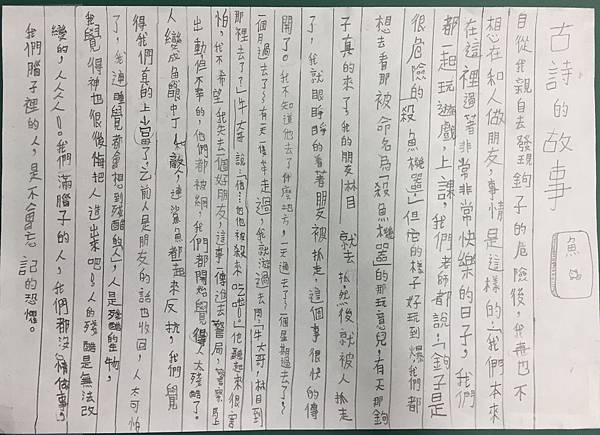 古詩的故事
魚
自從我親自去發現鉤子的危險後,我再也不
想在和人做朋友,事情是這樣的:我們本來
在這裡過著非常非常快樂的日子,我們
都一起玩遊戲,上課,我們老師都說:「鉤子是
很危險的「殺魚機器」但它的樣子好玩到爆我們都
想去看那被命名為「殺魚機器」的那玩意兒,有天那鉤
子真的來了,我的朋友林目 就去抓然後就被人抓走
了,我就眼睜睜的看著朋友被抓走,這個事很快的傳
開了。我不知道他去了什麼地方,一天過去了~一個星期過去了~
一個月過去了~有天一隻牛走過,我就游過去問:「牛大哥,林目到
那裡去了?」牛大 說:「恩…他被殺來吃啦!」他聽起來很害
怕,我不希望我失去一個好朋友,這事一傳進去警局,警察馬上
出動但不幸的,他們都被網,我們都開始覺得人太殘酷了。
人變成魚眼中丁「如敵」,連鯊魚都起來反抗,我們覺
得我們真的上當了,之前人是朋友的話也收回,人太可怕
了,我連睡覺都會想到殘酷的人,人是殘酷的生物,
我覺得神也很後悔把人造出來吧!人的殘酷是無法改
變的,人人人!。我們滿腦子的人,我們都沒有情做事,
我們腦子裡的人,是不會忘記的恐懼。